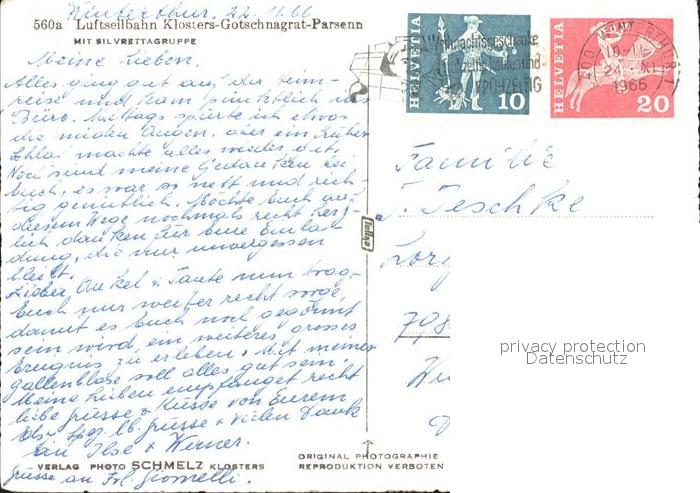 Winterthur, 22.11.66
560a Luftseilbahn Klosters-Gotschnagrat-Parsenn
MIT SILVRETTAGRUPPE
Meine Lieben.
Alles ging gut auf der Heim-
reise und kam pünktlich ins
Büro. Mittags spürte ich etwas
die müden Augen, aber ein früher
Schlaf machte alles wieder gut.
Noch sind meine Gedanken bei
Euch, es war so nett und rich-
tig gemütlich. Möchte Euch auf
diesem Wege nochmals recht herz-
lich danken für Eure Einla-
dung, die mir unvergessen
bleibt.
Lieber Onkel & Tante nun trag-
Euch nur weiter recht sorge,
damit es Euch noch gegönnt
sein wird ein weiteres grosses
Ereignis zu erleben. Mit meiner
Gallenblase soll alles gut sein.
Meine Lieben empfanget recht
liebe Grüsse & Küsse von Eurem
lb. Grüsse & vielen Dank
an Ilse & Werner.
VERLAG PHOTO SCHMELZ KLOSTERS
Grüsse an Frl. Giomelli.
HELVETIA 10
HELVETIA 20
WINTERTHUR 1
1966
Familie
J. Jeschke
Tellko
privacy protection
Datenschutz
ORIGINAL PHOTOGRAPHIE
REPRODUKTION VERBOTEN